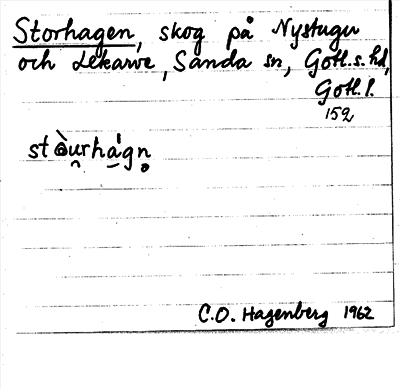 Storhagen, skog på Nystugu
och Lekarve, Sanda sn, Gotl. s. hd,
Gotl. l.
152
C.O. Hagenberg 1962